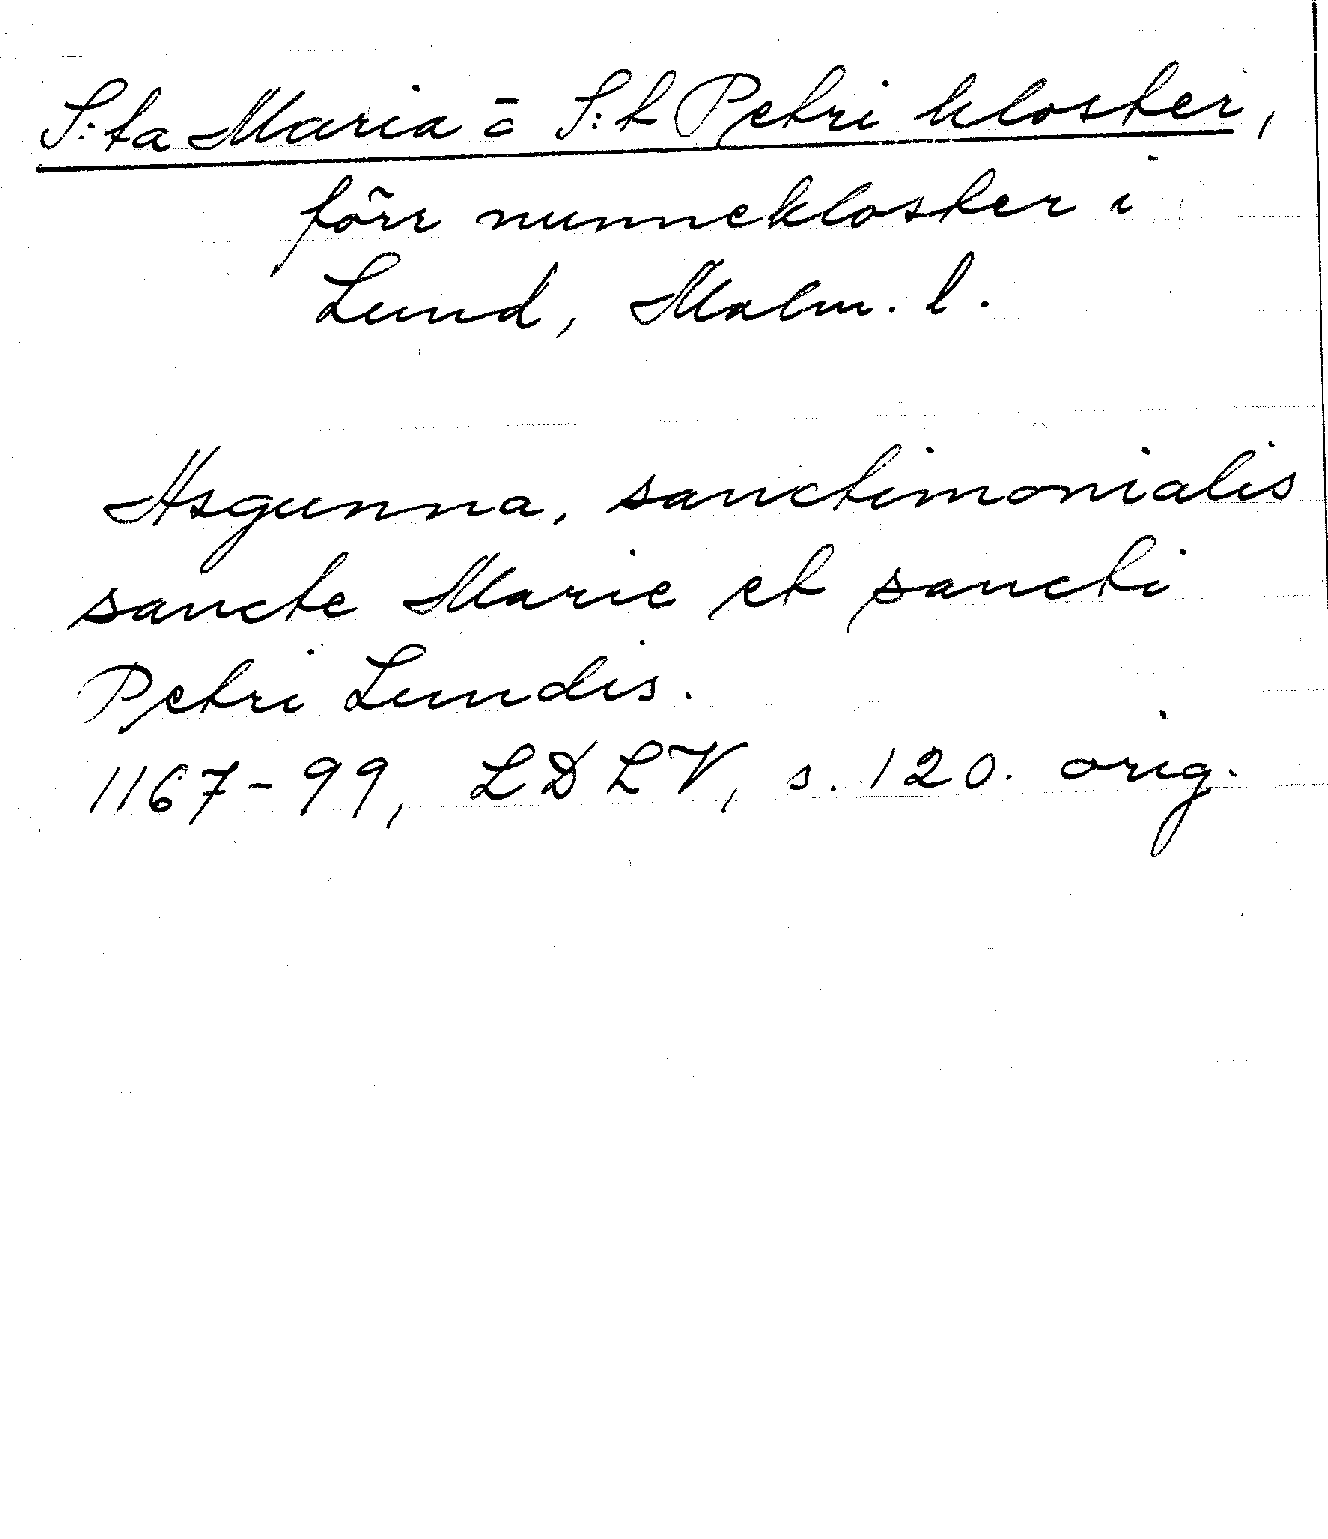 S:ta Maria o S:t Petri kloster,
förr nunnekloster i
Lund, Malm. l.
Asgunna, sanctimonialis
sancte Marie et sancti
Petri Lundis.
1167-99, LDLV, s. 120. orig.